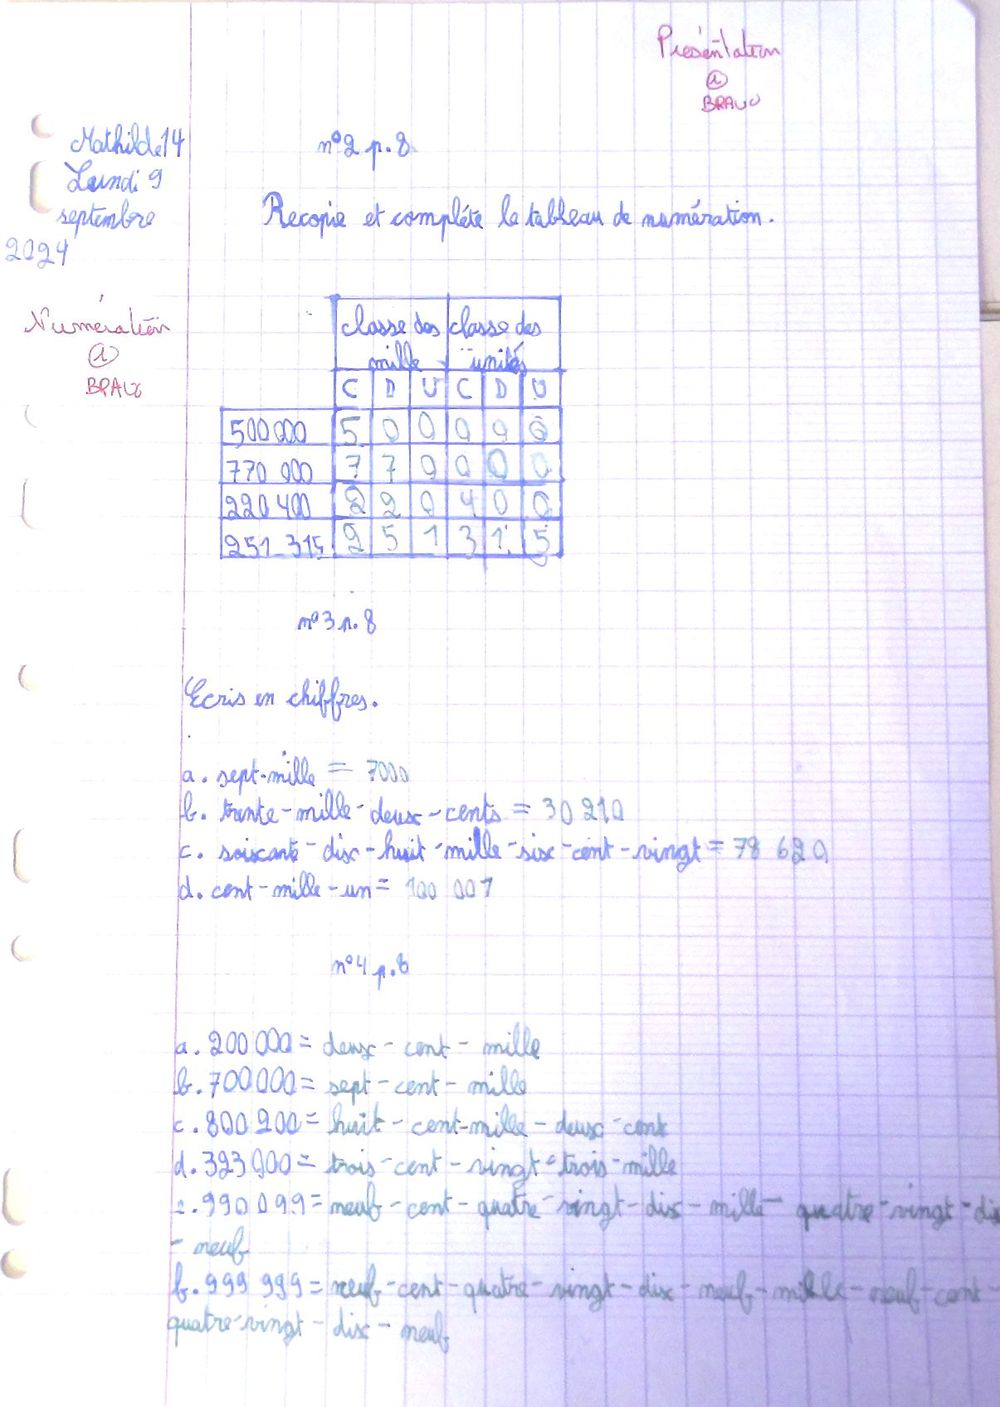 Présentation
a
BRAVO
Mathilde 14
Lundi 9
septembre
2024
n°2 p.8
Recopie et complète le tableau de numération.
Numération
a
BRAVO
classe des classe des
mille unités
C D U C D U
500 000 5 0 0 0 0 0
770 000 7 7 0 0 0 0
220 400 2 2 0 4 0 0
251 315 2 5 1 3 1 5
n°3 p.8
Ecris en chiffres.
a. sept-mille = 7000
b. trente-mille-deux-cents = 30 210
c. soixante-dix-huit-mille-six-cent-vingt = 78 620
d. cent-mille-un = 100 001
n°4 p.8
a. 200 000 = deux-cent-mille
b. 700 000 = sept-cent-mille
c. 800 200 = huit-cent-mille-deux-cent
d. 323 000 = trois-cent-vingt-trois-mille
e. 990 099 = neuf-cent-quatre-vingt-dix-mille-quatre-vingt-dix
- neuf
f. 999 999 = neuf-cent-quatre-vingt-dix-neuf-mille-neuf-cent-
quatre-vingt-dix-neuf